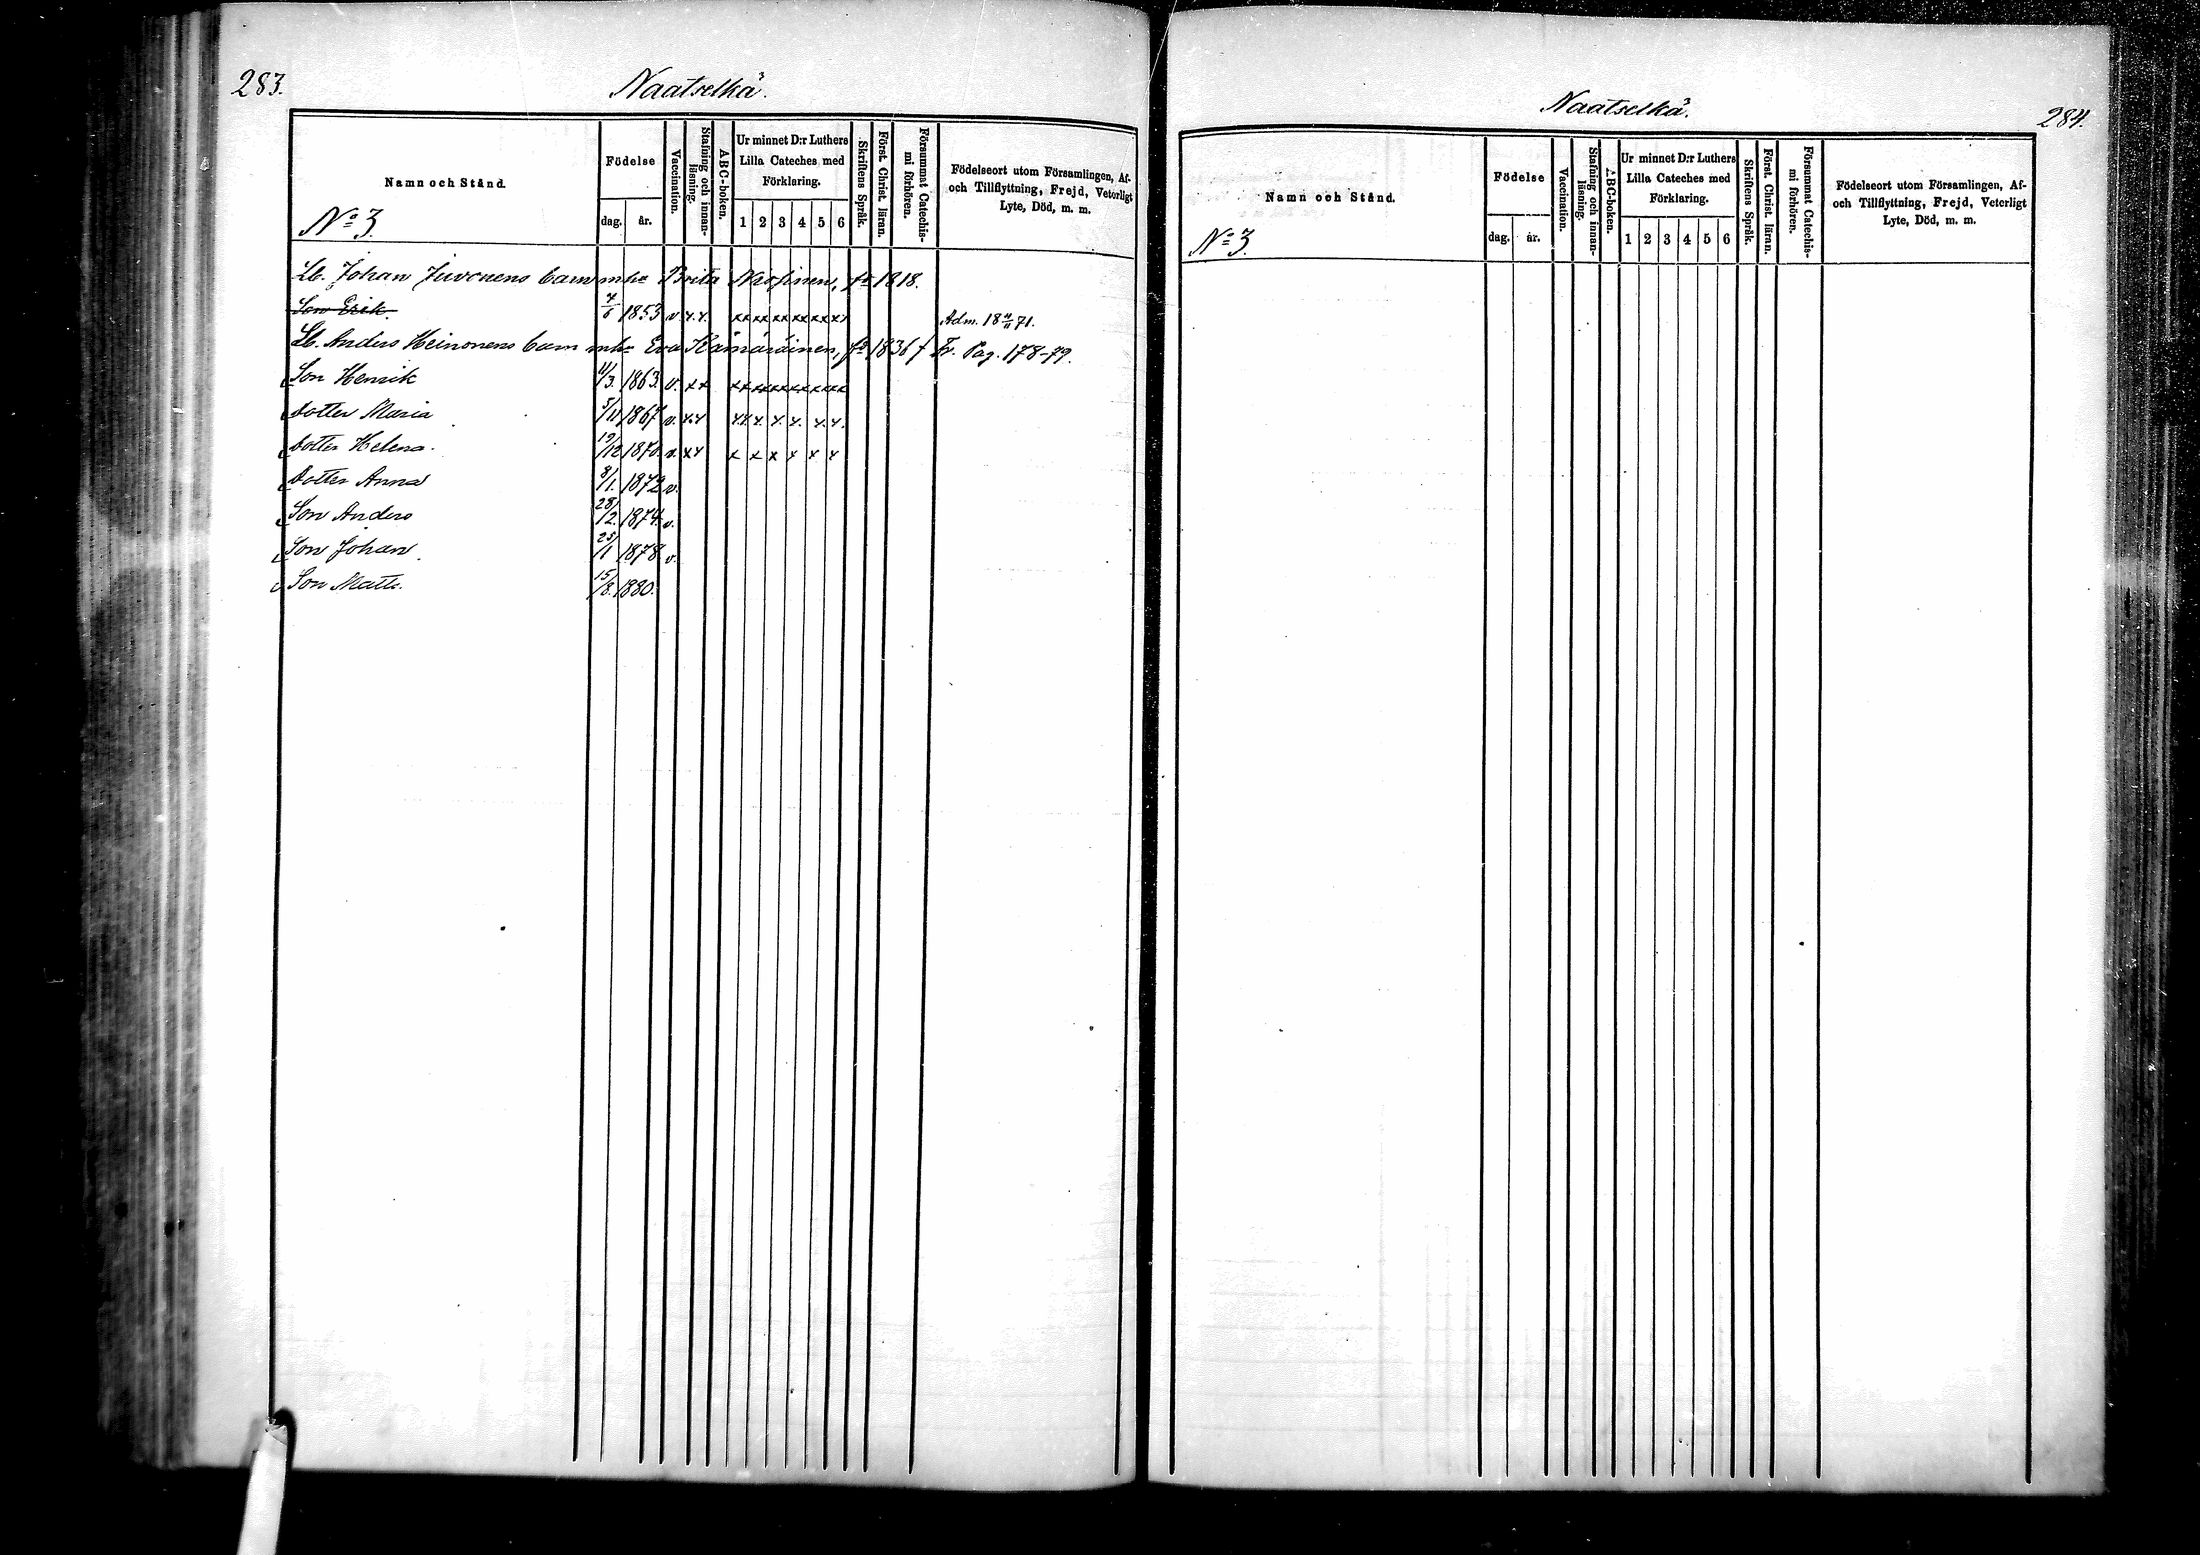 283.
Naatselkä.
Namn och Stånd.
Födelse
dag. år.
Vaccination.
Stafning och innanläsning.
ABC-boken.
Ur minnet D:r Luthers Lilla Cateches med Förklaring.
1 2 3 4 5 6
Skriftens Språk.
Först. Christ. läran.
Försummat Catechismi förhören.
Födelseort utom Församlingen, Af-
och Tillflyttning, Frejd, Veterligt
Lyte, Död, m. m.
No 3.
Lb. Johan Juvonens barn m. Brita fd 1818.
Son Erik. 7/6 1853 v x x xx xx xx xx xx xx Adm. 18 71.
Lb. Anders Heinonens barn m. Eva Kämäräinen, fd 1836 Fr. Pag. 178-79.
Son Henrik 11/3. 1863. v. x x xx xx xx xx xx xx
dotter Maria 5/11 1867 v. x x xx x x x x x.
dotter Helena. 19/12 1870. v. x x x x x x x x
dotter Anna 8/1. 1872 v.
Son Anders 28/2. 1874. v.
Son Johan 25/1 1878 v.
Son Matts. 15/8. 1880.
Naatselkä.
284.
Namn och Stånd.
Födelse
dag. år.
Vaccination.
Stafning och innanläsning.
ABC-boken.
Ur minnet D:r Luthers Lilla Cateches med Förklaring.
1 2 3 4 5 6
Skriftens Språk.
Först. Christ. läran.
Försummat Catechismi förhören.
Födelseort utom Församlingen, Af-
och Tillflyttning, Frejd, Veterligt
Lyte, Död, m. m.
No 3.